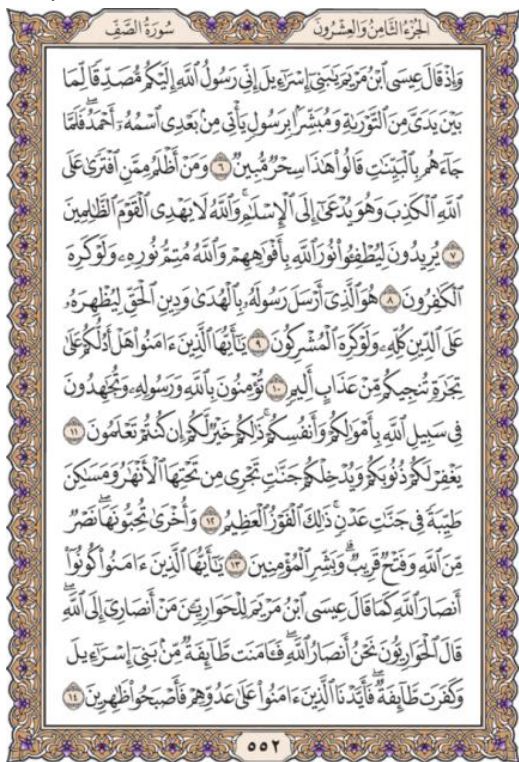 الجزء الثامن والعشرون سورة الصف
وَإِذْ قَالَ عِيسَى ٱبْنُ مَرْيَمَ يَٰبَنِىٓ إِسْرَٰٓءِيلَ إِنِّى رَسُولُ ٱللَّهِ إِلَيْكُم مُّصَدِّقًا لِّمَا
بَيْنَ يَدَىَّ مِنَ ٱلتَّوْرَىٰةِ وَمُبَشِّرًۢا بِرَسُولٍ يَأْتِى مِنۢ بَعْدِى ٱسْمُهُۥٓ أَحْمَدُ ۖ فَلَمَّا
جَآءَهُم بِٱلْبَيِّنَٰتِ قَالُوا۟ هَٰذَا سِحْرٌ مُّبِينٌ ٦ وَمَنْ أَظْلَمُ مِمَّنِ ٱفْتَرَىٰ عَلَى
ٱللَّهِ ٱلْكَذِبَ وَهُوَ يُدْعَىٰٓ إِلَى ٱلْإِسْلَٰمِ ۚ وَٱللَّهُ لَا يَهْدِى ٱلْقَوْمَ ٱلظَّٰلِمِينَ
٧ يُرِيدُونَ لِيُطْفِـُٔوا۟ نُورَ ٱللَّهِ بِأَفْوَٰهِهِمْ وَٱللَّهُ مُتِمُّ نُورِهِۦ وَلَوْ كَرِهَ
ٱلْكَٰفِرُونَ ٨ هُوَ ٱلَّذِىٓ أَرْسَلَ رَسُولَهُۥ بِٱلْهُدَىٰ وَدِينِ ٱلْحَقِّ لِيُظْهِرَهُۥ
عَلَى ٱلدِّينِ كُلِّهِۦ وَلَوْ كَرِهَ ٱلْمُشْرِكُونَ ٩ يَٰٓأَيُّهَا ٱلَّذِينَ ءَامَنُوا۟ هَلْ أَدُلُّكُمْ عَلَىٰ
تِجَٰرَةٍ تُنجِيكُم مِّنْ عَذَابٍ أَلِيمٍ ١٠ تُؤْمِنُونَ بِٱللَّهِ وَرَسُولِهِۦ وَتُجَٰهِدُونَ
فِى سَبِيلِ ٱللَّهِ بِأَمْوَٰلِكُمْ وَأَنفُسِكُمْ ۚ ذَٰلِكُمْ خَيْرٌ لَّكُمْ إِن كُنتُمْ تَعْلَمُونَ ١١
يَغْفِرْ لَكُمْ ذُنُوبَكُمْ وَيُدْخِلْكُمْ جَنَّٰتٍ تَجْرِى مِن تَحْتِهَا ٱلْأَنْهَٰرُ وَمَسَٰكِنَ
طَيِّبَةً فِى جَنَّٰتِ عَدْنٍ ۚ ذَٰلِكَ ٱلْفَوْزُ ٱلْعَظِيمُ ١٢ وَأُخْرَىٰ تُحِبُّونَهَا ۖ نَصْرٌ
مِّنَ ٱللَّهِ وَفَتْحٌ قَرِيبٌ ۗ وَبَشِّرِ ٱلْمُؤْمِنِينَ ١٣ يَٰٓأَيُّهَا ٱلَّذِينَ ءَامَنُوا۟ كُونُوٓا۟
أَنصَارَ ٱللَّهِ كَمَا قَالَ عِيسَى ٱبْنُ مَرْيَمَ لِلْحَوَارِيِّـۧنَ مَنْ أَنصَارِىٓ إِلَى ٱللَّهِ ۖ
قَالَ ٱلْحَوَارِيُّونَ نَحْنُ أَنصَارُ ٱللَّهِ ۖ فَـَٔامَنَت طَّآئِفَةٌ مِّنۢ بَنِىٓ إِسْرَٰٓءِيلَ
وَكَفَرَت طَّآئِفَةٌ ۖ فَأَيَّدْنَا ٱلَّذِينَ ءَامَنُوا۟ عَلَىٰ عَدُوِّهِمْ فَأَصْبَحُوا۟ ظَٰهِرِينَ ١٤
٥٥٢